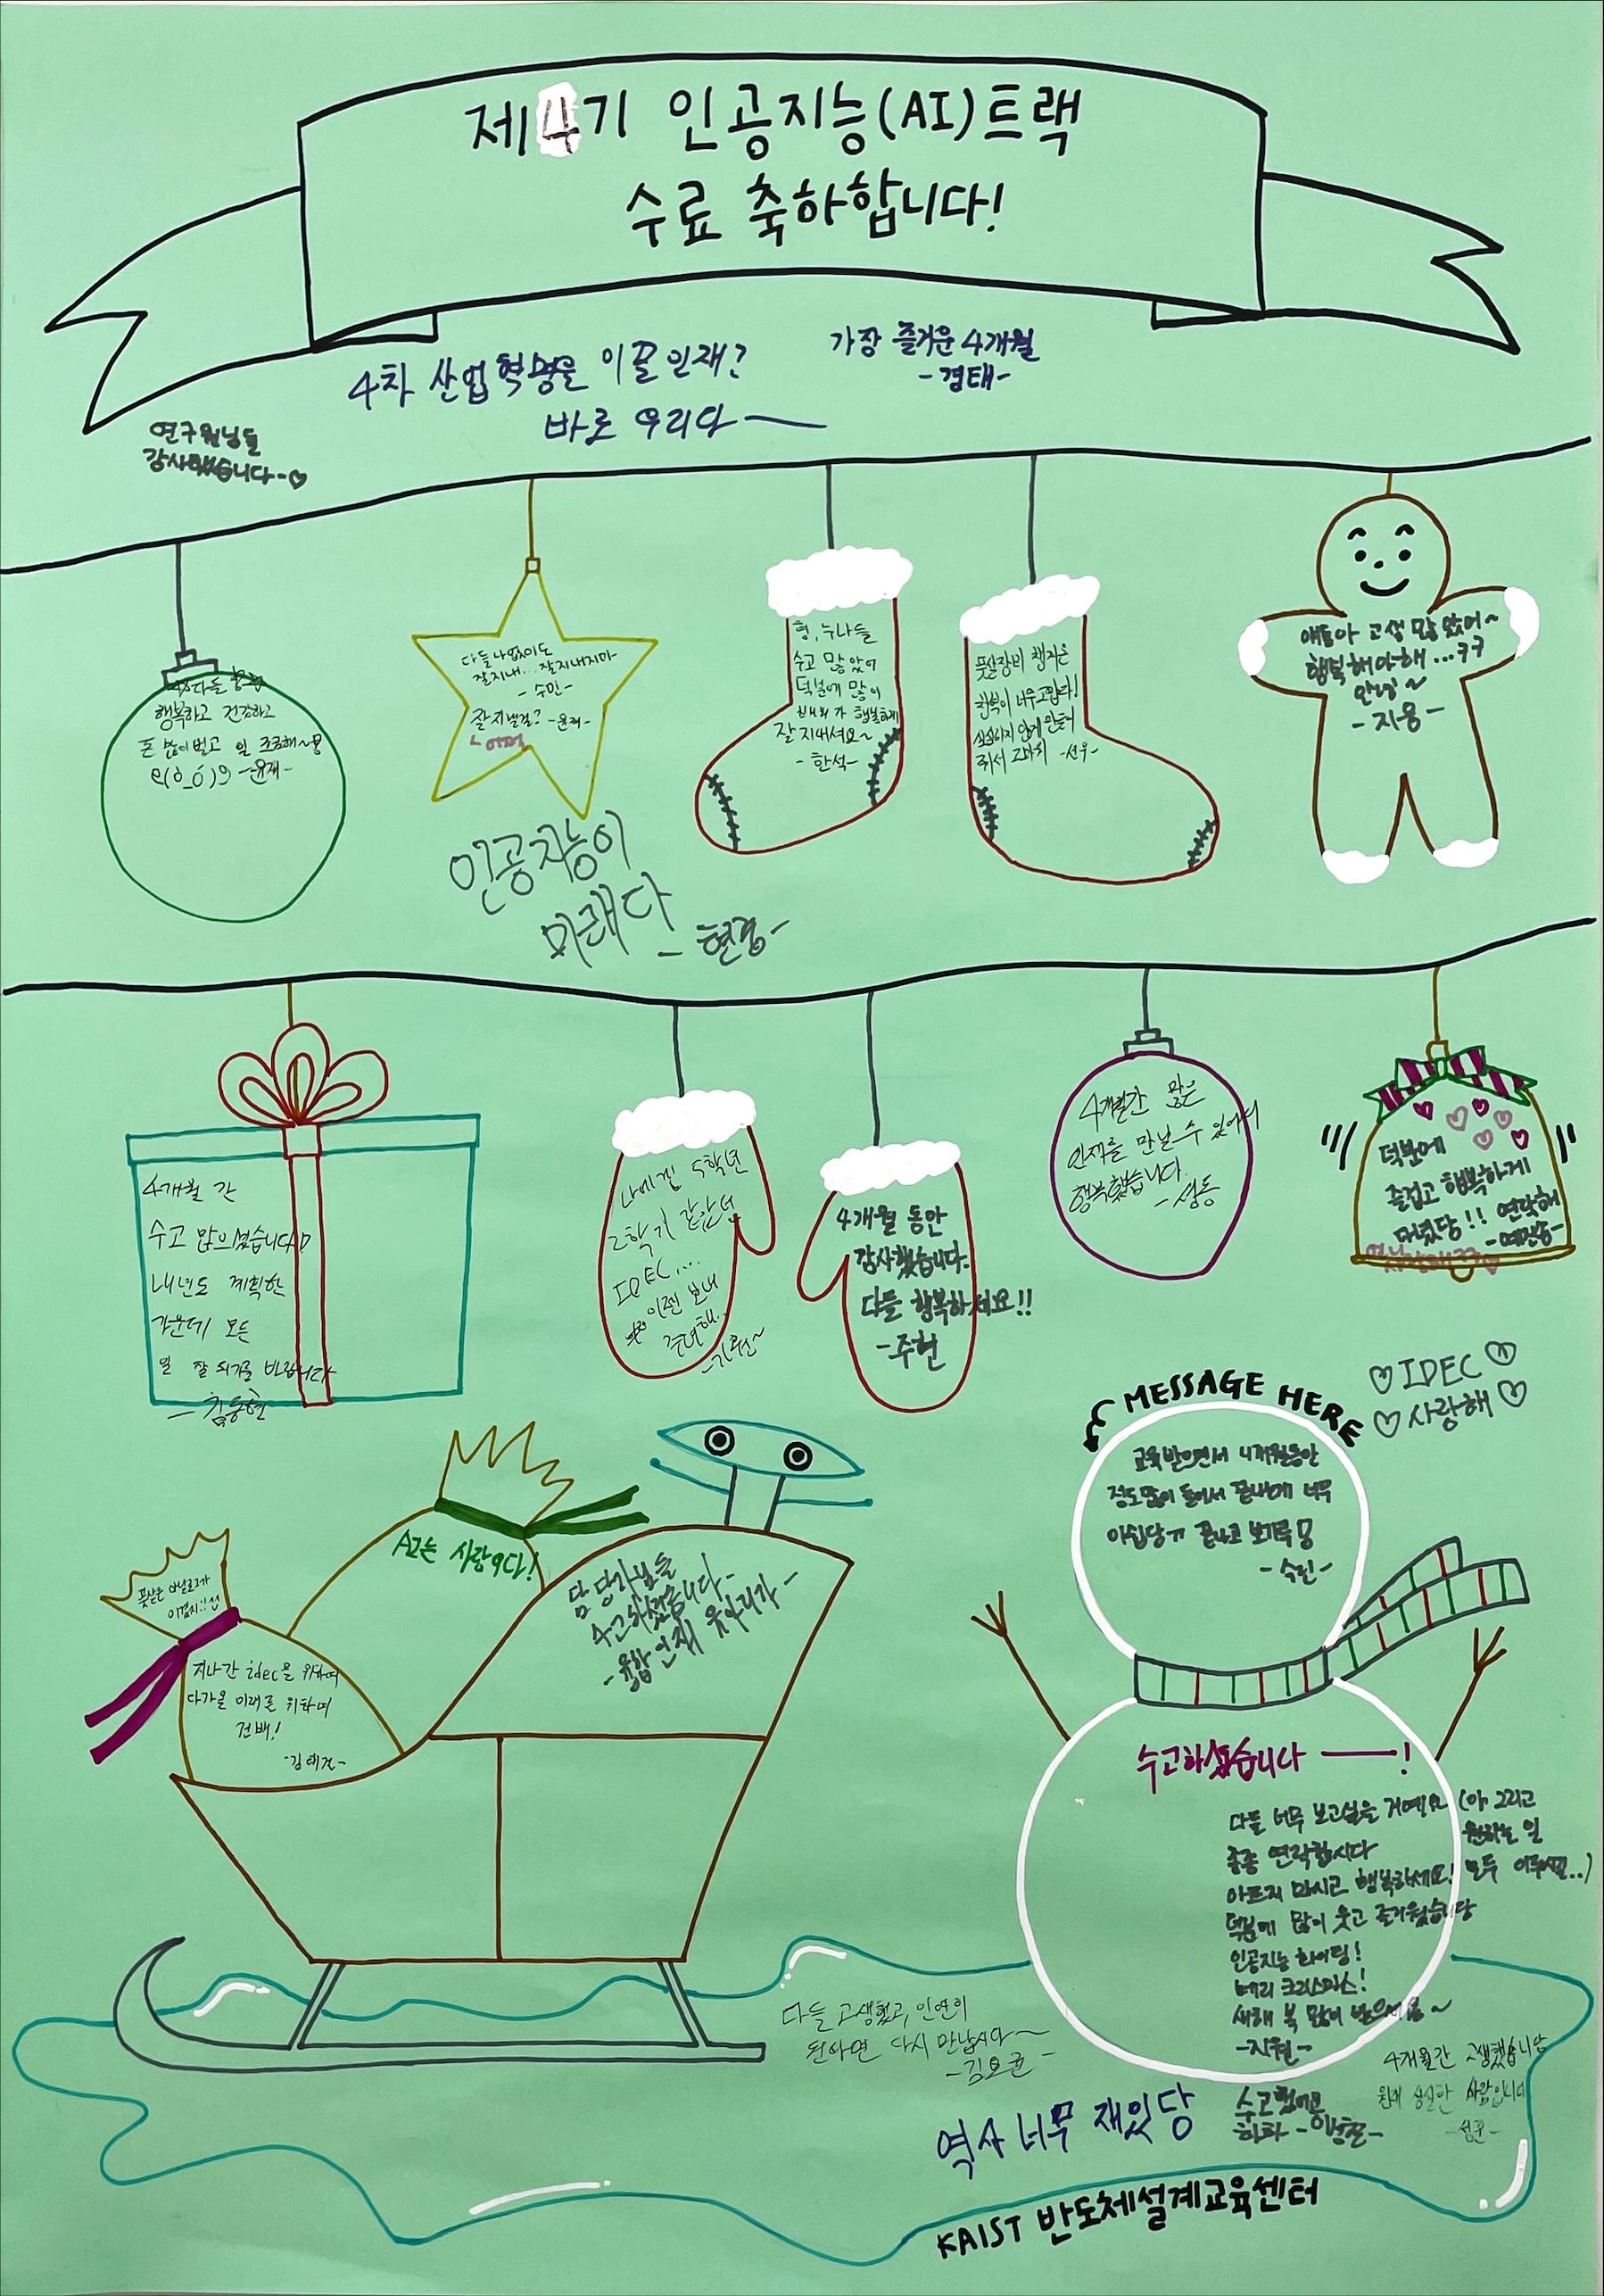 제4기 인공지능(AI)트랙
수료 축하합니다!
4차 산업혁명을 이끌 인재?
바로 우리다
가장 즐거운 4개월
-경태-
연구원님들
감사했습니다-♡
다들
행복하고 건강하고
돈 많이벌고 일 조금해~
-윤재-
다들 나 없이도
잘지내... 잘지내지마-
- 수민-
잘지낼걸? -윤재-
형, 누나들
수고 많았어
덕분에 많이
행복하게
잘 지내셔요~
- 한석-
풋살장비 챙겨온
너무 고맙다!
-선우-
얘들아 고생 많았어~
행복해야해...ㅋㅋ
안녕~
-지용-
인공지능이
미래다
- 현경-
4개월 간
수고 많으셨습니다
내년도 계획한
가운데 모든
일 잘 되기를 바랍니다
- 김동현
나에겐 5학년
2학기 같았던
IDEC...
이젠 보내
줘야해..
4개월 동안
감사했습니다.
다들 행복하세요!!
-주현
4개월간 많은
인재를 만날 수 있어서
행복했습니다.
-성동
덕분에
즐겁고 행복하게
다녔당!! 연락해
-예진-
MESSAGE HERE
♡IDEC♡
♡사랑해♡
교육받으면서 4개월동안
정도많이 들어서 끝나는게 너무
아쉽당ㅠ 끝나고 보기루
-숙린-
AI는 사랑이다!
풋살은
이겼지!!
지나간 idec을 위하여
다가올 미래를 위하여
건배!
-김태건-
담당자님들
수고하셨습니다-
-융합인재 웃자리가-
수고하셨습니다 ——!
다들 너무 보고싶을 거예요 (아 그리고
원하는 일
종종 연락합시다
아프지 마시고 행복하세요! 모두 이루세요..)
덕분에 많이 웃고 즐거웠습니당
인공지능 화이팅!
메리 크리스마스!
새해 복 많이 받으세요~
-지원-
다들 고생했고, 인연이
된다면 다시 만납시다~
-김요균-
4개월간 고생했습니다
-성준-
역사 너무 재밌당
KAIST 반도체설계교육센터